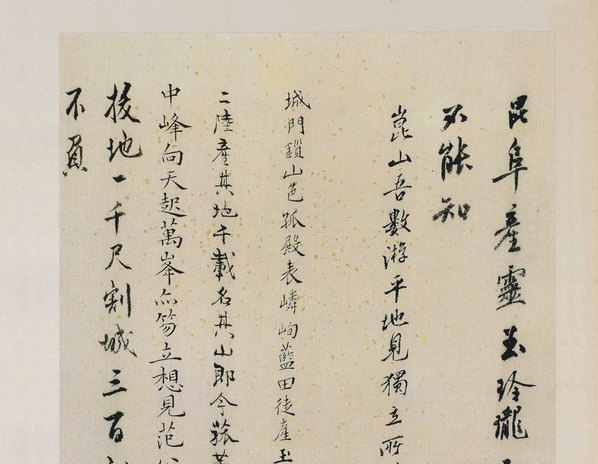 昆阜產靈玉玲瓏
不能知
崑山吾數游平地見獨立所
城門鎖山色孤殿表嶙峋藍田徒產玉
二陸產其地千載名其山郎今菰
中峰向天起萬峯亦笏立想見范
拔地一千尺割城三百
不負